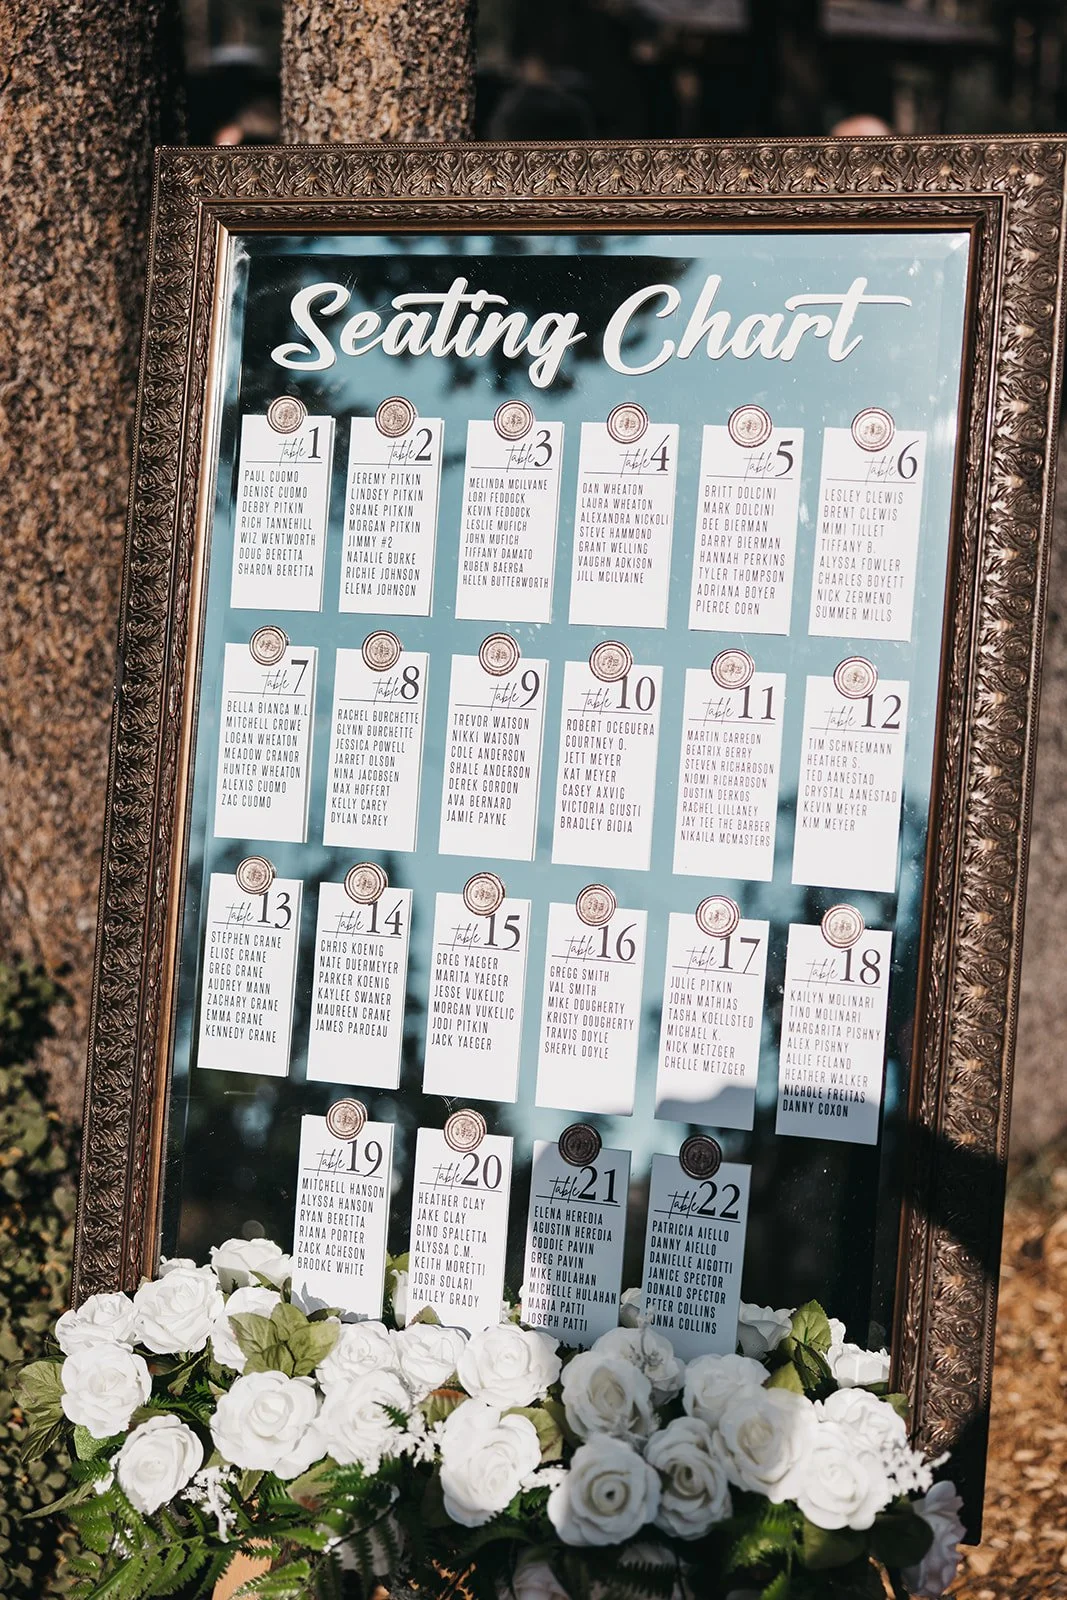 Seating Chart
table 1
PAUL CUOMO
DENISE CUOMO
DEBBY PITKIN
RICH TANNEHILL
WIZ WENTWORTH
DOUG BERETTA
SHARON BERETTA
table 2
JEREMY PITKIN
LINDSEY PITKIN
SHANE PITKIN
MORGAN PITKIN
JIMMY #2
NATALIE BURKE
RICHIE JOHNSON
ELENA JOHNSON
table 3
MELINDA MCILVANE
LORI FEDDOCK
KEVIN FEDDOCK
LESLIE MUFICH
JOHN MUFICH
TIFFANY DAMATO
RUBEN BAERGA
HELEN BUTTERWORTH
table 4
DAN WHEATON
LAURA WHEATON
ALEXANDRA NICKOLI
STEVE HAMMOND
GRANT WELLING
VAUGHN ADKISON
JILL MCILVAINE
table 5
BRITT DOLCINI
MARK DOLCINI
BEE BIERMAN
BARRY BIERMAN
HANNAH PERKINS
TYLER THOMPSON
ADRIANA BOYER
PIERCE CORN
table 6
LESLEY CLEWIS
BRENT CLEWIS
MIMI TILLET
TIFFANY B.
ALYSSA FOWLER
CHARLES BOYETT
NICK ZERMENO
SUMMER MILLS
table 7
BELLA BIANCA M.L
MITCHELL CROWE
LOGAN WHEATON
MEADOW CRANOR
HUNTER WHEATON
ALEXIS CUOMO
ZAC CUOMO
table 8
RACHEL BURCHETTE
GLYNN BURCHETTE
JESSICA POWELL
JARRET OLSON
NINA JACOBSEN
MAX HOFFERT
KELLY CAREY
DYLAN CAREY
table 9
TREVOR WATSON
NIKKI WATSON
COLE ANDERSON
SHALE ANDERSON
DEREK GORDON
AVA BERNARD
JAMIE PAYNE
table 10
ROBERT OCEGUERA
COURTNEY O.
JETT MEYER
KAT MEYER
CASEY AXVIG
VICTORIA GIUSTI
BRADLEY BIDIA
table 11
MARTIN CARBEON
BEATRIX BERRY
STEVEN RICHARDSON
NIOMI RICHARDSON
DUSTIN DERKOS
RACHEL LILLANEY
JAY TEE THE BARBER
NIKAILA MCMASTERS
table 12
TIM SCHNEEMANN
HEATHER S.
TED AANESTAD
CRYSTAL AANESTAD
KEVIN MEYER
KIM MEYER
table 13
STEPHEN CRANE
ELISE CRANE
GREG CRANE
AUDREY MANN
ZACHARY CRANE
EMMA CRANE
KENNEDY CRANE
table 14
CHRIS KOENIG
NATE DUERMEYER
PARKER KOENIG
KAYLEE SWANER
MAUREEN CRANE
JAMES PARDEAU
table 15
GREG YAEGER
MARITA YAEGER
JESSE VUKELIC
MORGAN VUKELIC
JODI PITKIN
JACK YAEGER
table 16
GREGG SMITH
VAL SMITH
MIKE DOUGHERTY
KRISTY DOUGHERTY
TRAVIS DOYLE
SHERYL DOYLE
table 17
JULIE PITKIN
JOHN MATHIAS
TASHA KOELLSTED
MICHAEL K.
NICK METZGER
CHELLE METZGER
table 18
KAILYN MOLINARI
TINO MOLINARI
MARGARITA PISHNY
ALEX PISHNY
ALLIE FELAND
HEATHER WALKER
NICHOLE FREITAS
DANNY COXON
table 19
MITCHELL HANSON
ALYSSA HANSON
RYAN BERETTA
RIANA PORTER
ZACK ACHESON
BROOKE WHITE
table 20
HEATHER CLAY
JAKE CLAY
GINO SPALETTA
ALYSSA C.M.
KEITH MORETTI
JOSH SOLARI
HAILEY GRADY
table 21
ELENA HEREDIA
AGUSTIN HEREDIA
CODDIE PAVIN
GREG PAVIN
MIKE HULAHAN
MICHELLE HULAHAN
MARIA PATTI
JOSEPH PATTI
table 22
PATRICIA AIELLO
DANNY AIELLO
DANIELLE AIGOTTI
JANICE SPECTOR
DONALD SPECTOR
PETER COLLINS
DONNA COLLINS